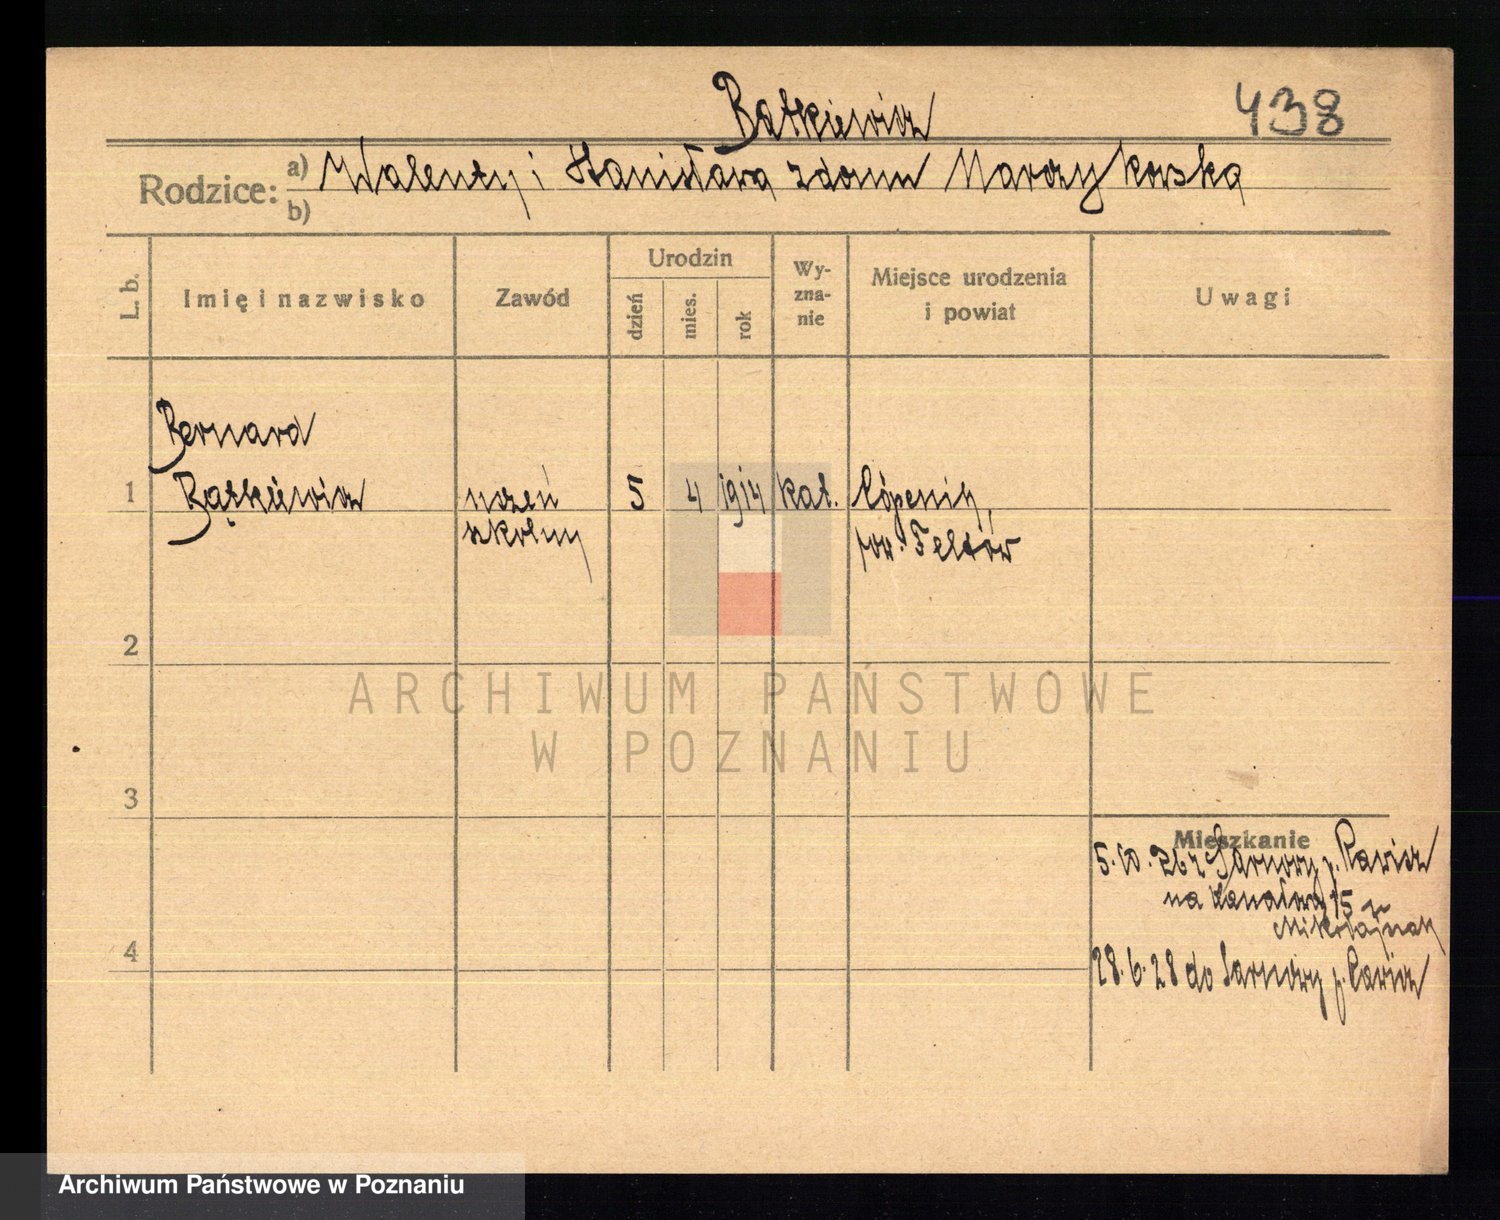 Bątkiewicz
438
Rodzice: a) Walenty i Stanisława z domu
b)
L. b.
Imię i nazwisko
Zawód
Urodzin
dzień mies. rok
Wy-
zna-
nie
Miejsce urodzenia
i powiat
Uwagi
Bernard
1 Bątkiewicz uczeń 5 4 1914 kat. Cöpenik,
szkolny pow. Teltów
2
ARCHIWUM PAŃSTWOWE
W POZNANIU
3
Mieszkanie
5.10.26 z Sarnowy p. Rawicz
na 15
4
28.6.28 do Sarnowy p. Rawicz
Archiwum Państwowe w Poznaniu